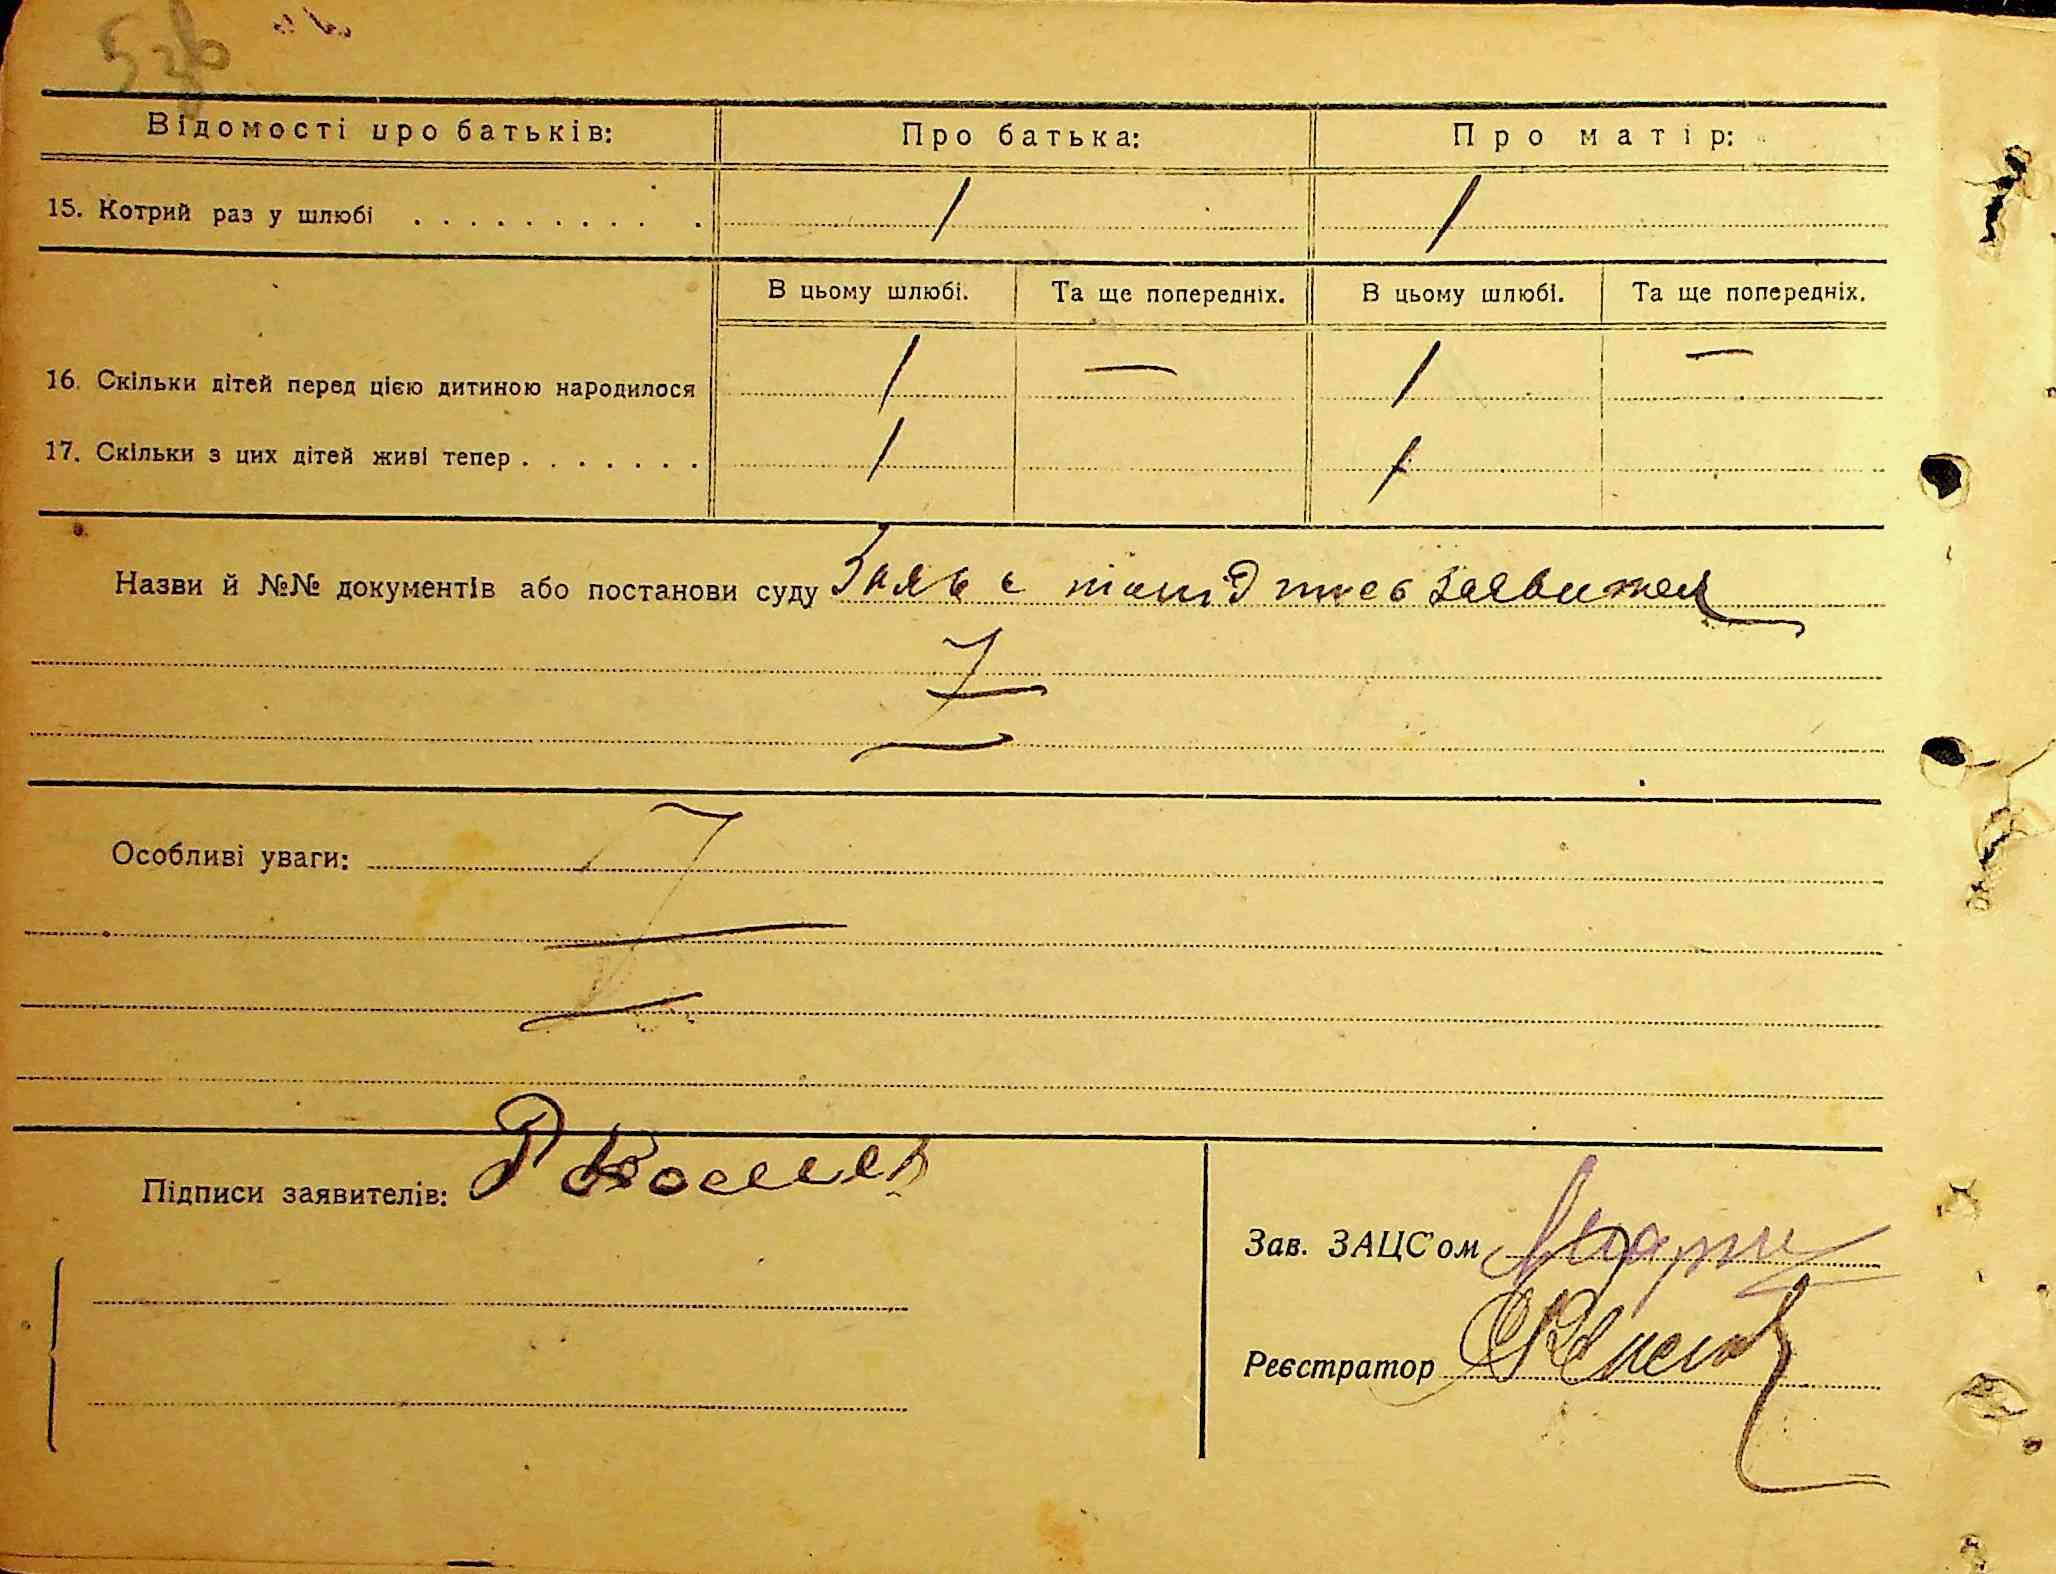 Відомості про батьків: Про батька: Про матір:
15. Котрий раз у шлюбі . . . . . . . . . . 1 1
В цьому шлюбі. Та ще попередніх. В цьому шлюбі. Та ще попередніх.
16. Скільки дітей перед цією дитиною народилося 1 — 1 —
17. Скільки з цих дітей живі тепер . . . . . . . 1 1
Назви й №№ документів або постанови суду
Особливі уваги:
Підписи заявителів:
Зав. ЗАЦС'ом
Реєстратор